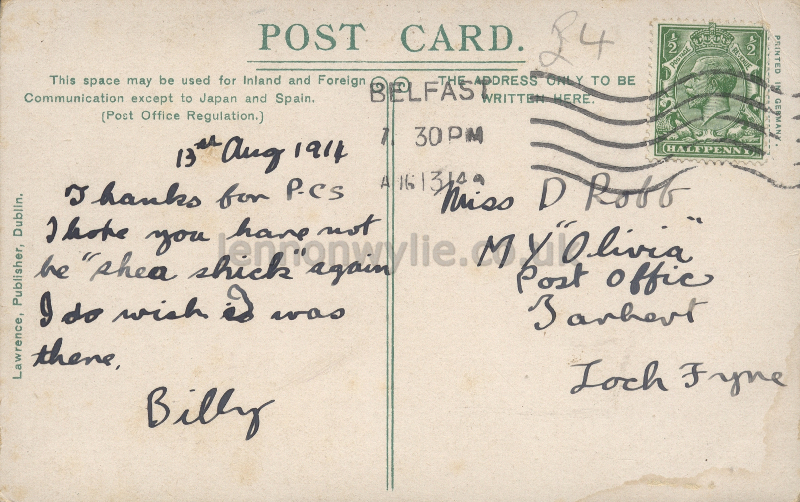 POST CARD.
£4
½ ½
HALFPENNY
PRINTED IN GERMANY.
This space may be used for Inland and Foreign
Communication except to Japan and Spain.
(Post Office Regulation.)
THE ADDRESS ONLY TO BE
WRITTEN HERE.
BELFAST
7. 30 PM
13 14
Lawrence, Publisher, Dublin.
13th Aug 1914
Thanks for P-Cs
I hope you have not
be "shea shick" again
I do wish I was
there.
Billy
Miss D Robb
M Y "Olivia"
Post Offic
Tarbert
Loch Fyne
lennonwylie.co.uk